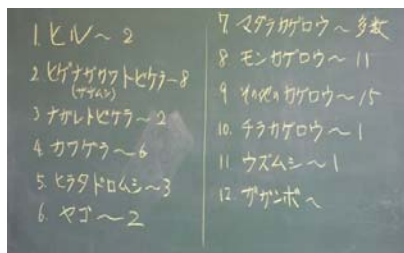 1. ヒル～2
2. ヒゲナガカワトビケラ～8
(ザザムシ)
3 ナガレトビケラ～2
4. カワゲラ～6
5. ヒラタドロムシ～3
6. ヤゴ～2
7. マダラカゲロウ～多数
8 モンカゲロウ～11
9 その他のカゲロウ～15
10. チラカゲロウ～1
11 ウズムシ～1
12. ガガンボ～